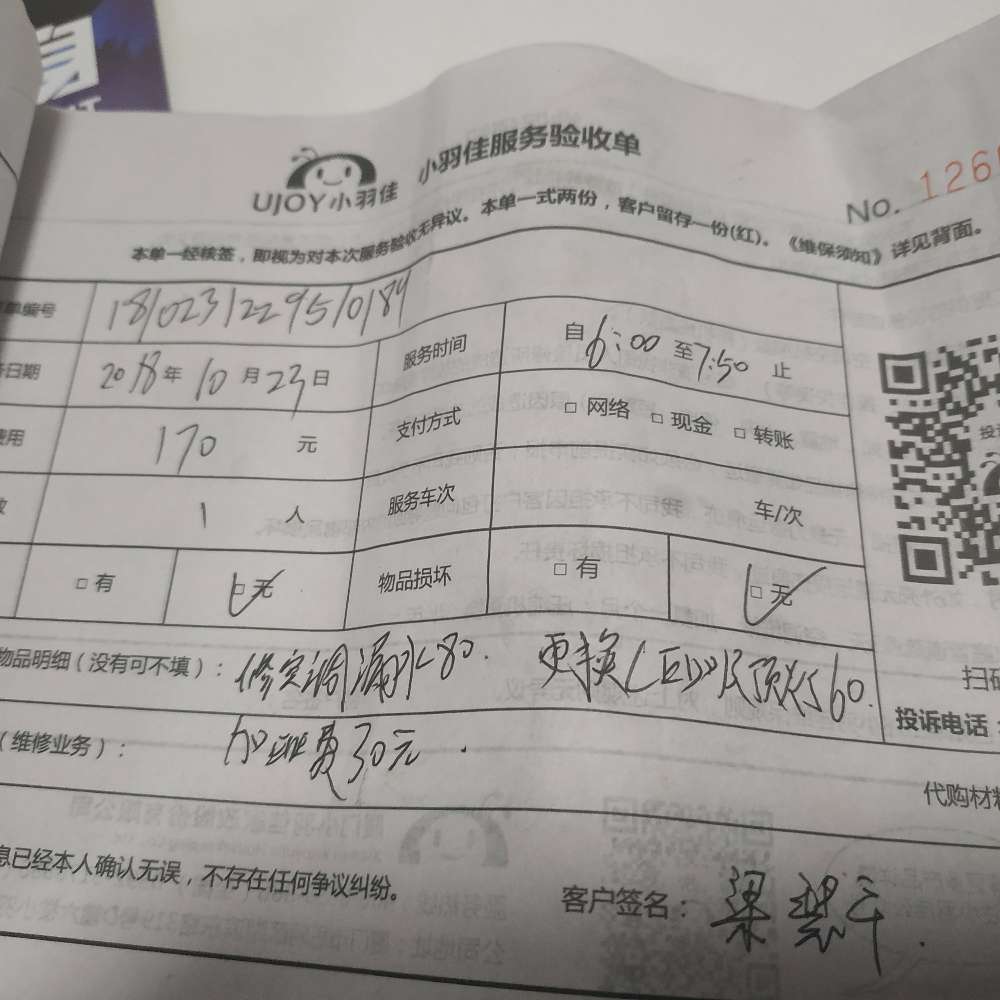 UJOY小羽佳 小羽佳服务验收单
No. 126
本单一经核签，即视为对本次服务验收无异议。本单一式两份，客户留存一份(红)。《维保须知》详见背面。
单编号 181023122951018
日期 2018年 10月23日 服务时间 自6:00至7:50止
费用 170 元 支付方式 □ 网络 □ 现金 □ 转账
1 人 服务车次 车/次
□ 有 □ 无 物品损坏 □ 有 □ 无
物品明细（没有可不填）：修空调漏水80. 更换LED 60.
扫码
投诉电话：
（维修业务）： 加班费30元.
代购材料
息已经本人确认无误，不存在任何争议纠纷。
客户签名：梁